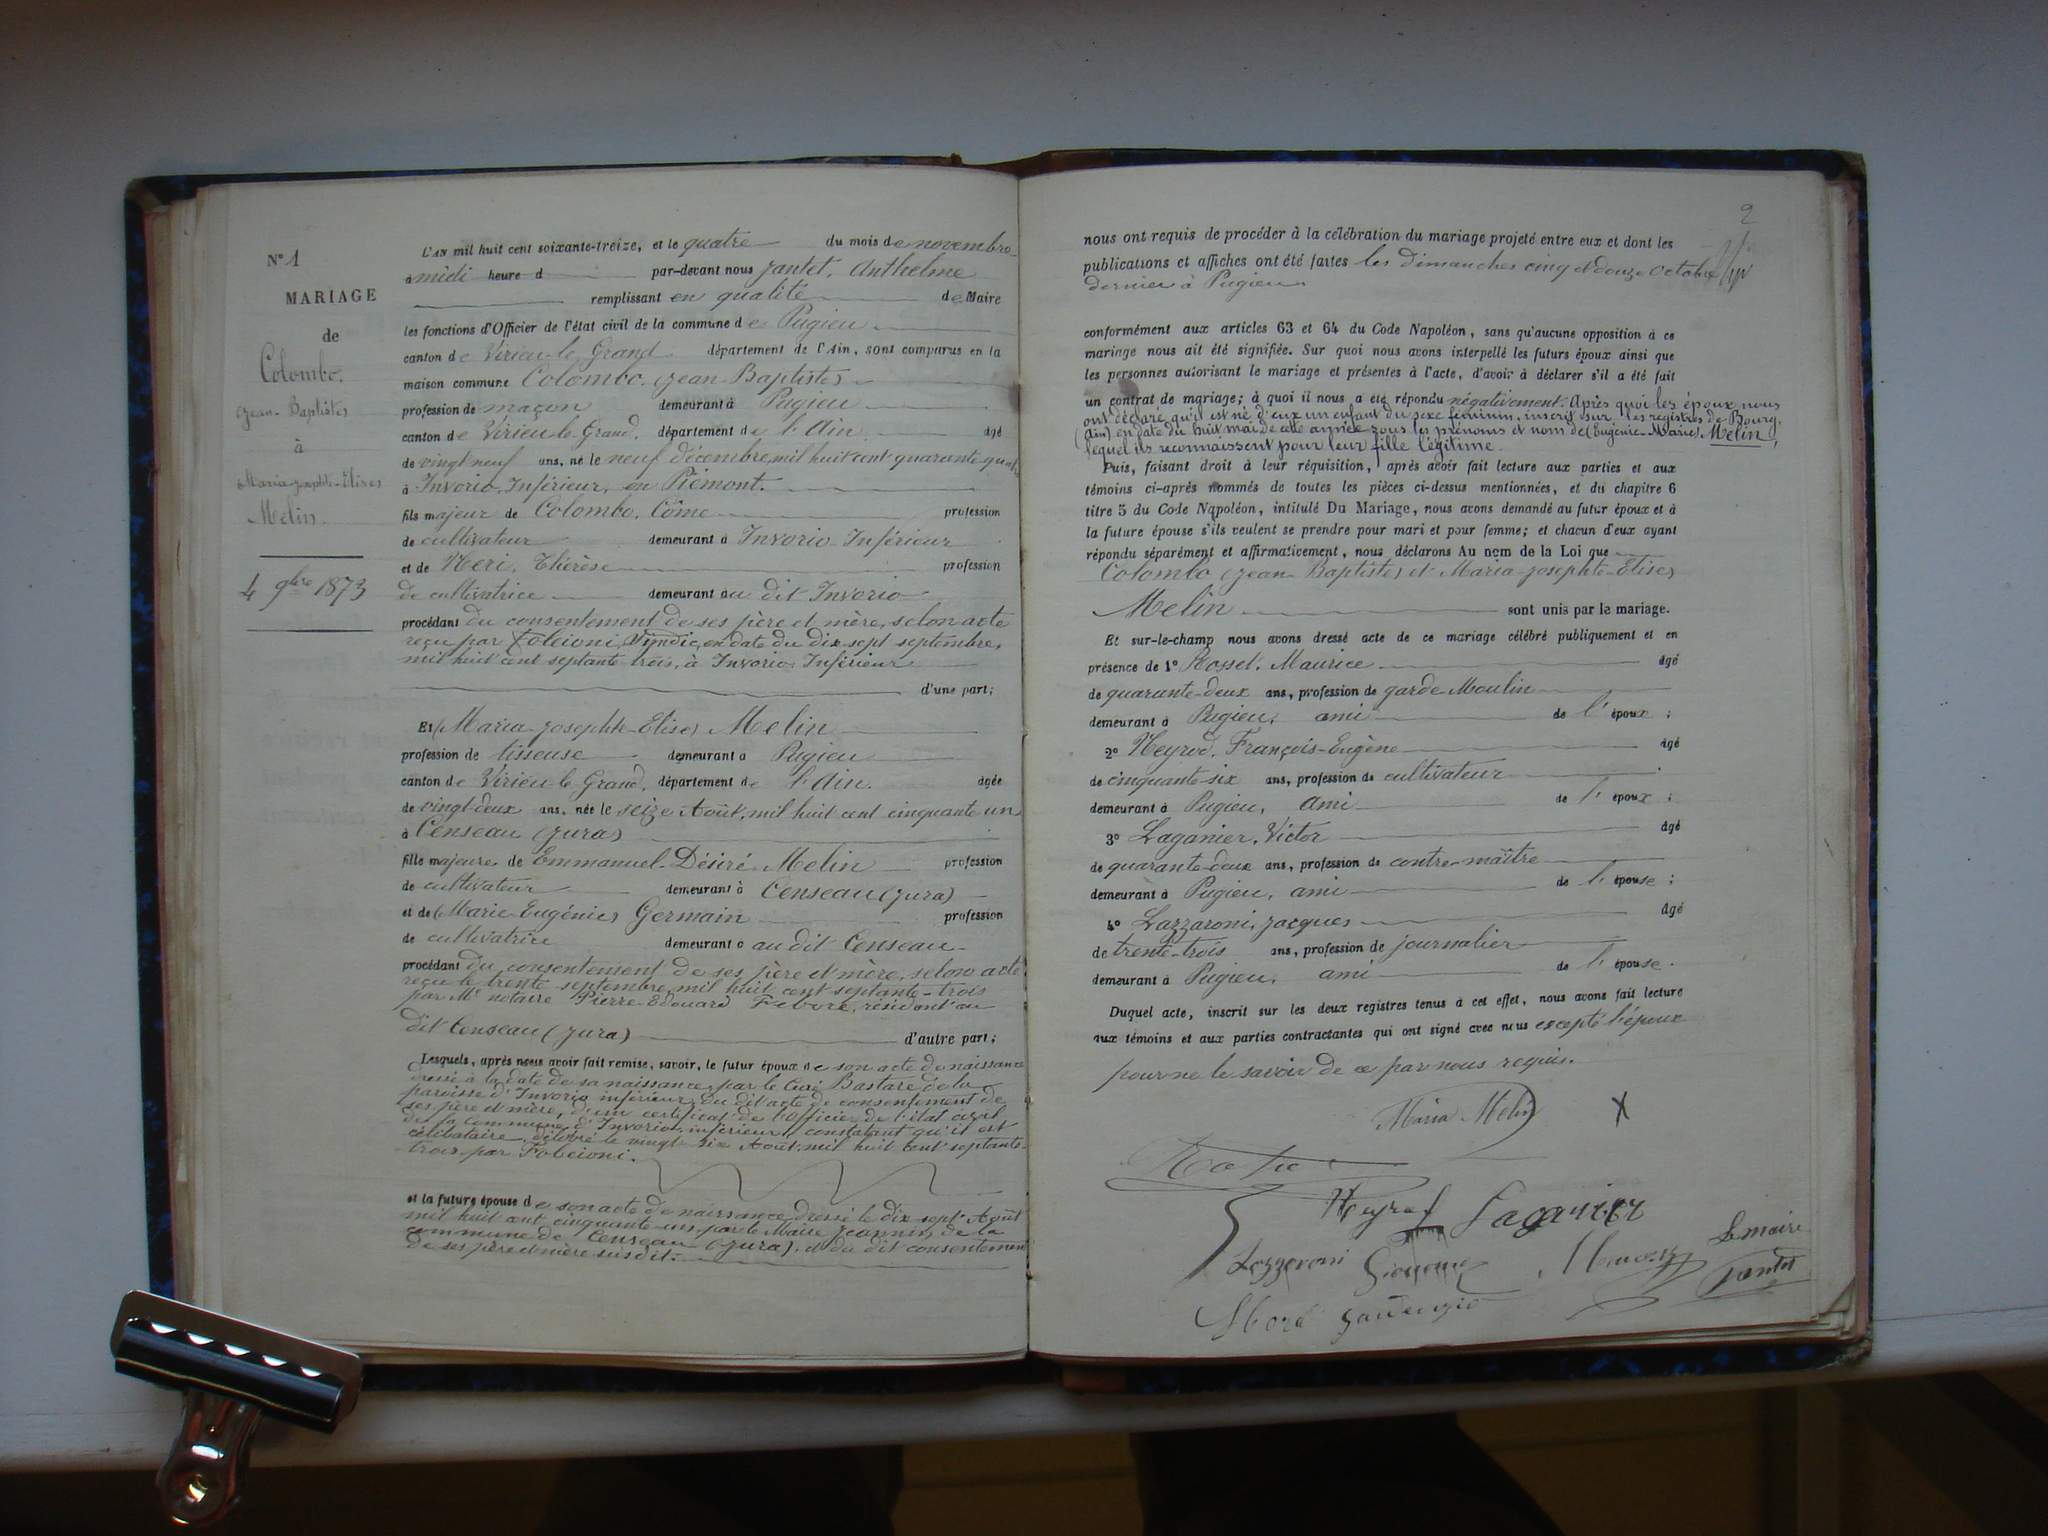 N° 1
MARIAGE
de
Colombo.
(Jean-Baptiste)
à
(Maria-Josephte-Elise)
Melin.
4 9bre 1873
L'AN mil huit cent soixante-treize, et le quatre du mois de novembre
à midi heure d par-devant nous Jantet, Anthelme
remplissant en qualité de Maire
les fonctions d'Officier de l'état civil de la commune de Pugieu
canton de Virieu-le-Grand département de l'Ain, sont comparus en la
maison commune Colombo. (Jean-Baptiste)
profession de maçon demeurant à Pugieu
canton de Virieu-le-Grand, département de l'Ain âgé
de vingt-neuf ans, né le neuf décembre mil huit cent quarante-quatre
à Invorio-Inférieur, en Piémont.
fils majeur de Colombo, Côme profession
de cultivateur demeurant à Invorio-Inférieur
et de Neri, Thérèse profession
de cultivatrice demeurant au dit Invorio
procédant du consentement de ses père et mère, selon acte
reçu par Folcioni, Syndic, en date du dix-sept septembre,
mil huit cent septante-trois, à Invorio-Inférieur
d'une part;
Et (Maria-Josephte-Elise) Melin
profession de tisseuse demeurant à Pugieu
canton de Virieu-le-Grand, département de l'Ain. âgée
de vingt-deux ans, née le seize Août, mil huit cent cinquante-un
à Censeau (Jura)
fille majeure de Emmanuel-Désiré Melin profession
de cultivateur demeurant à Censeau (Jura)
et de (Marie-Eugénie) Germain profession
de cultivatrice demeurant à au dit Censeau
procédant du consentement de ses père et mère, selon acte
reçu le trente septembre mil huit cent septante-trois
par Me notaire Pierre-Edouard Fèvre, résidant au
dit Censeau (Jura) d'autre part;
Lesquels, après nous avoir fait remise, savoir, le futur époux de son acte de naissance
dressé à la date de sa naissance, par le Curé Bastare de la
paroisse d'Invorio inférieur, du dit acte de consentement de
ses père et mère, d'un certificat de l'officier de l'état civil
de la commune d'Invorio-inférieur, constatant qu'il est
célibataire, délivré le vingt-six Août, mil huit cent septante-
trois par Folcioni.
et la future épouse de son acte de naissance dressé le dix-sept Août
mil huit cent cinquante-un par le Maire Jeannin, de la
commune de Censeau (Jura), et du dit consentement
de ses père et mère susdit.
2
nous ont requis de procéder à la célébration du mariage projeté entre eux et dont les
publications et affiches ont été faites les dimanches cinq et douze Octobre
dernier à Pugieu.
conformément aux articles 63 et 64 du Code Napoléon, sans qu'aucune opposition à ce
mariage nous ait été signifiée. Sur quoi nous avons interpellé les futurs époux ainsi que
les personnes autorisant le mariage et présentes à l'acte, d'avoir à déclarer s'il a été fait
un contrat de mariage; à quoi il nous a été répondu négativement. Après quoi les époux nous
ont déclaré qu'il est né d'eux un enfant du sexe féminin, inscrit sur les registres de Bourg,
(Ain) en date du huit mai de cette année sous les prénoms et nom de (Eugénie-Marie) Melin,
lequel ils reconnaissent pour leur fille légitime.
Puis, faisant droit à leur réquisition, après avoir fait lecture aux parties et aux
témoins ci-après nommés de toutes les pièces ci-dessus mentionnées, et du chapitre 6
titre 5 du Code Napoléon, intitulé Du Mariage, nous avons demandé au futur époux et à
la future épouse s'ils veulent se prendre pour mari et pour femme; et chacun d'eux ayant
répondu séparément et affirmativement, nous déclarons Au nom de la Loi que
Colombo (Jean-Baptiste) et Maria-Josephte-Elise)
Melin sont unis par le mariage.
Et sur-le-champ nous avons dressé acte de ce mariage célébré publiquement et en
présence de 1° Rosset, Maurice âgé
de quarante-deux ans, profession de garde-Moulin
demeurant à Pugieu, ami de l'époux;
2° Neyrod, François-Eugène âgé
de cinquante-six ans, profession de cultivateur
demeurant à Pugieu, ami de l'époux;
3° Laganier, Victor âgé
de quarante-deux ans, profession de contre-maître
demeurant à Pugieu, ami de l'épouse;
4° Lazzaroni, Jacques âgé
de trente-trois ans, profession de journalier
demeurant à Pugieu, ami de l'épouse.
Duquel acte, inscrit sur les deux registres tenus à cet effet, nous avons fait lecture
aux témoins et aux parties contractantes qui ont signé avec nous excepté l'époux
pour ne le savoir de ce par nous requis.
Maria Melin X
Laganier
Lazzeroni
Le maire
Jantet